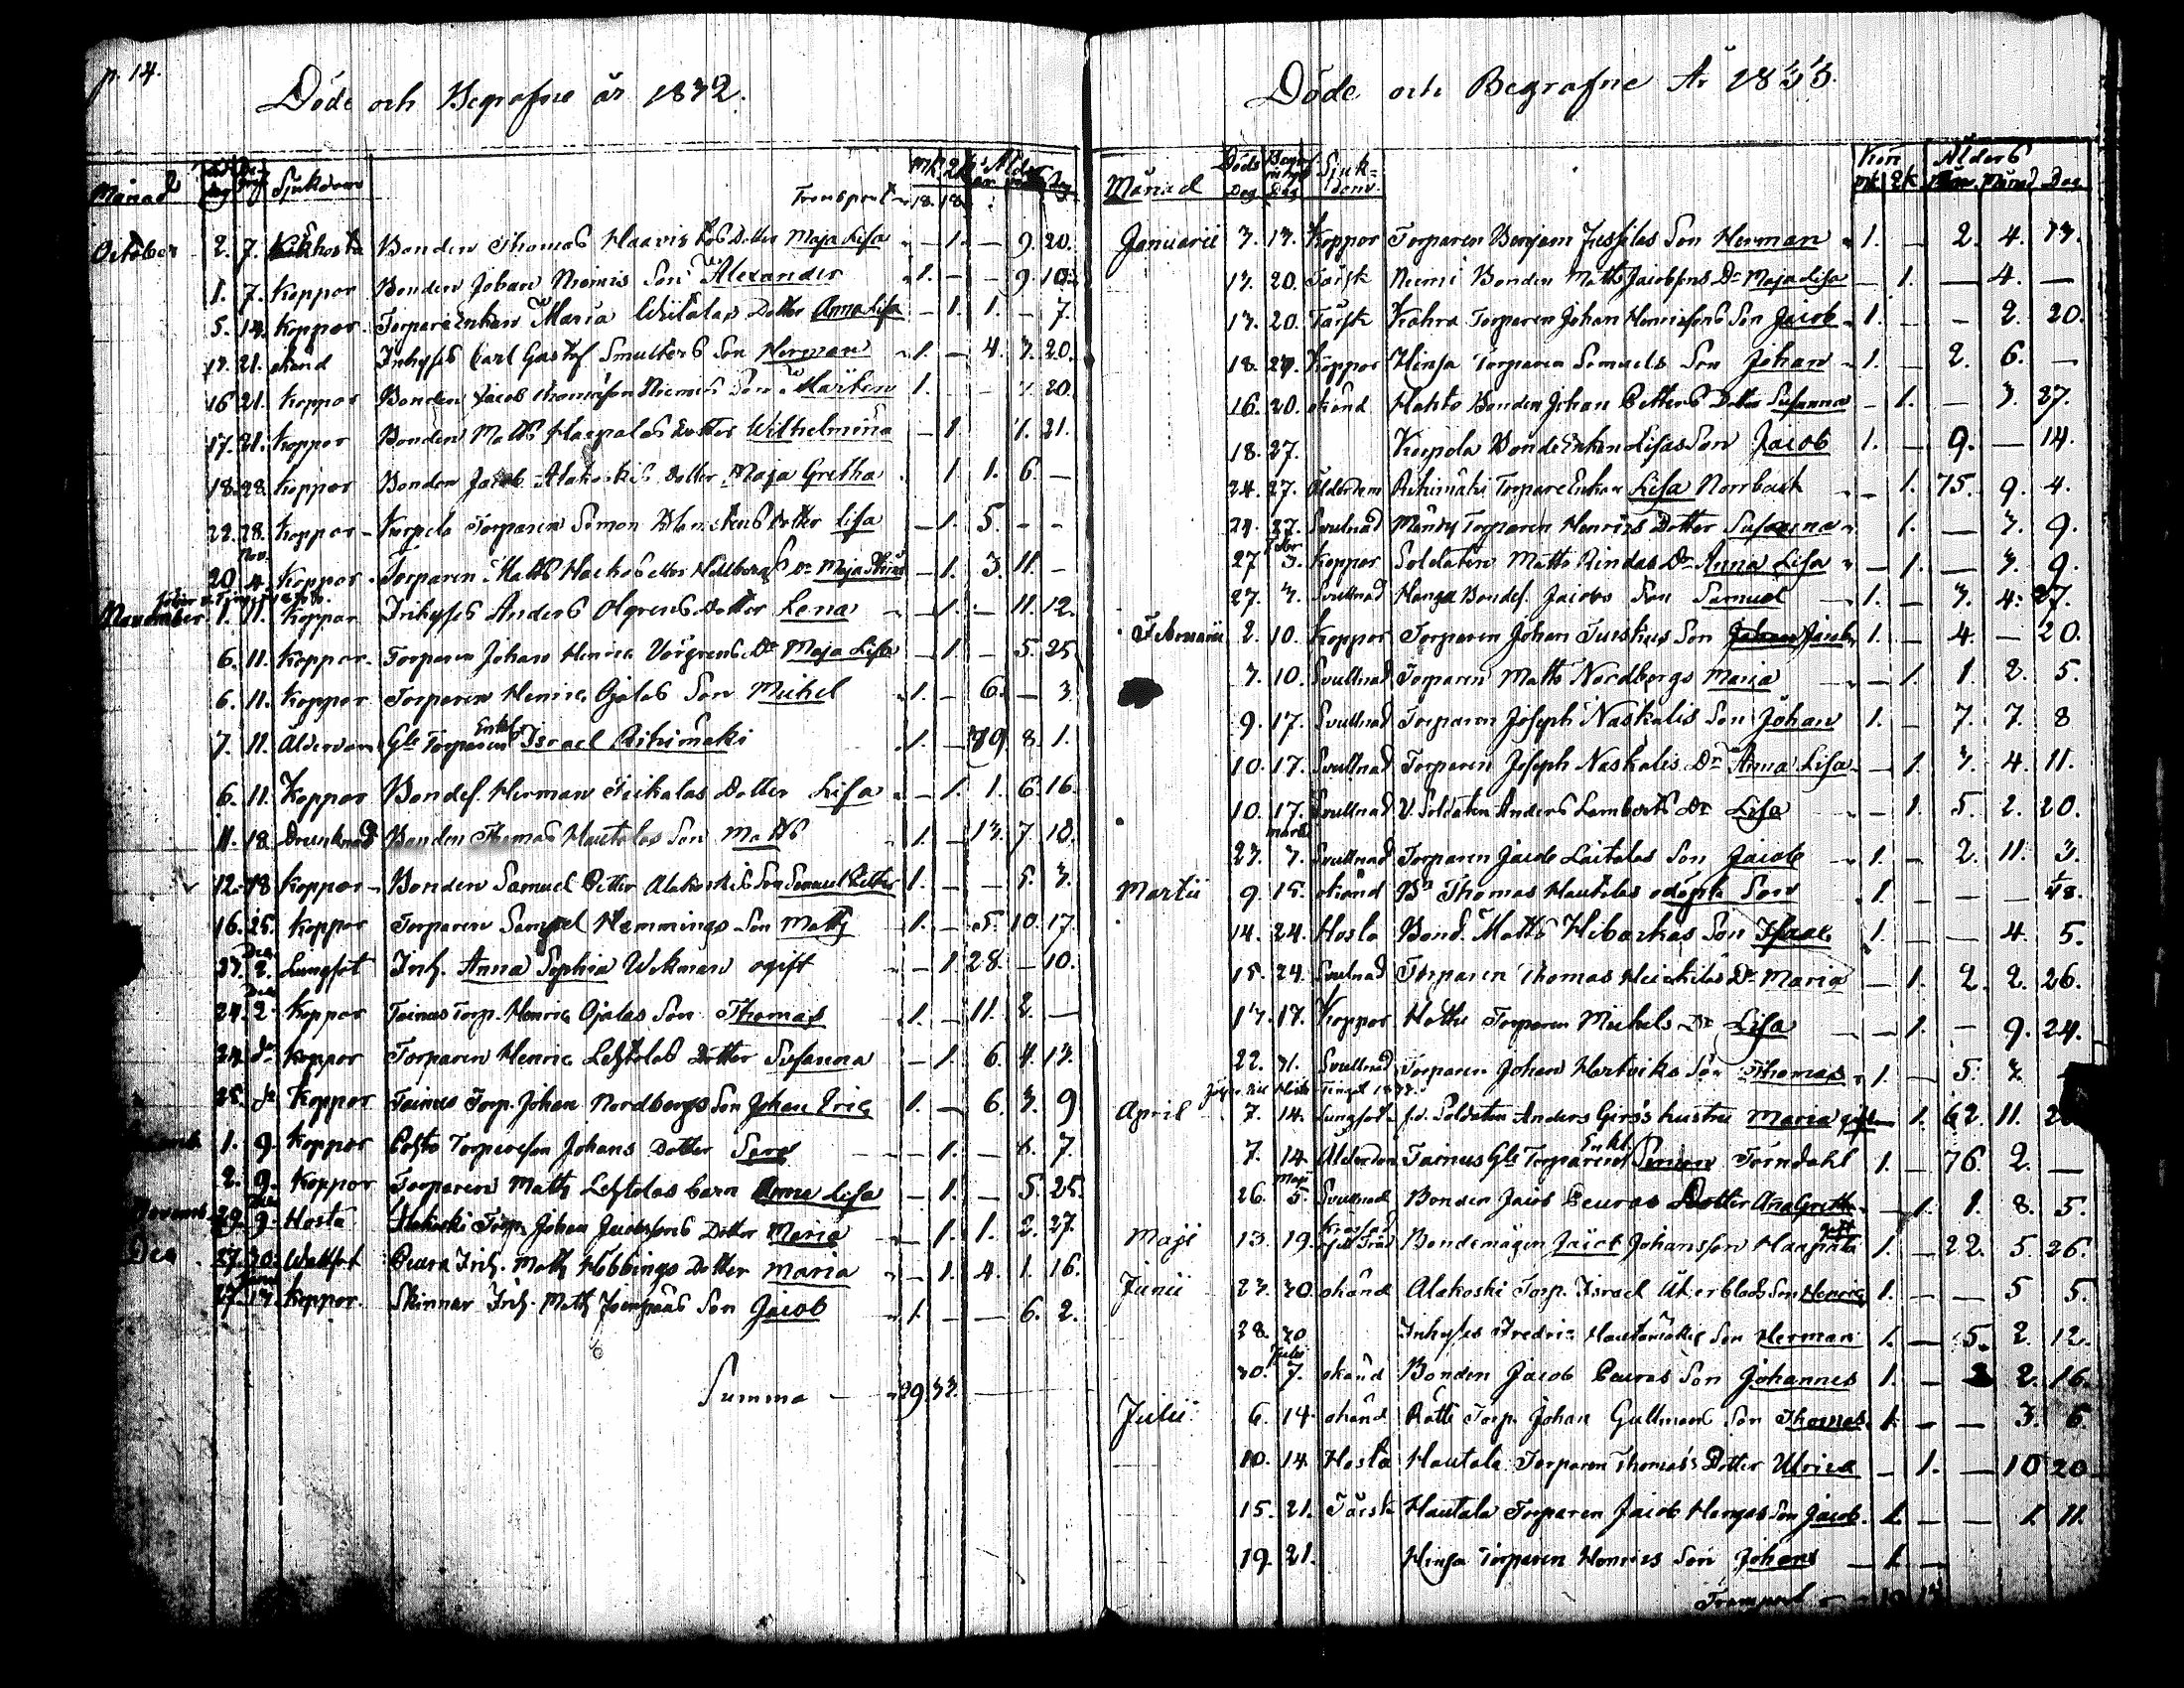 p. 14.
Döde och Begrafne år 1832.
Månad Sjukdom Mk. Qk. Ålder
Transport 18. 18.
October 2. 7. Kikhosta Bonden Thomas Haavistos Dotter Maja Lisa — 1. — 9. 20.
1. 7. Koppor Bonden Johan Niemis Son Alexander 1. — — 9. 10.
5. 14. Koppor Torpare Enkan Maria Dotter Anna Lisa — 1. 1. — 7.
17. 21. okänd Inhyses Carl Gustaf Smulters Son Herman 1. — 4. 3. 20.
16 21. Koppor Bonden Jacob Thomæson Niemis Son Mårten 1. — — 7. 20.
17. 21. Koppor Bonden Matts Haapalas Dotter Wilhelmina — 1 7. 21.
18. 28. Koppor Bonden Jacob Alakoskis Dotter Maja Gretha 1 1. 6. —
22. 28. Koppor Kurpela Torparen Simon Dotter Lisa — 1. 5. — —
Nov.
20. 4. Koppor Torparen Matts eller Hellbergs Dr Maja — 1. 3. 11. —
November 1. 11. Koppor Inhyses Anders Olgrens Dotter Lena — 1. — 11. 12.
6. 11. Koppor Torparen Johan Henric Dr Maja Lisa — 1. — 5. 25
6. 11. Koppor Torparen Henric Ojalas Son Michel 1. — 6. — 3.
Enkl.
7. 11. Ålderdom Gle Torparen Israel Rihimäki 1. — 79. 8. 1.
6. 11. Koppor Bondes. Herman Dotter Lisa — 1. 1. 6. 16.
11. 18. Drunknad Bonden Thomas Hautalas Son Matts 1. — 13. 7. 18.
12. 18 Koppor Bonden Samuel Petter Alakoskis Son Samuel Petter 1. — — 5. 3.
16. 25. Koppor Torparen Samuel Hemmings Son Matts 1. — 5. 10. 17.
Dec.
27. 2. Lungsot Inh. Anna Sophia Wikman ogift — 1. 28. — 10.
Dec
24. 2. Koppor Tainus Torp. Henric Ojalas Son Thomas 1. — 11. 2. —
24. do Koppor Torparen Henric Dotter Susanna — 1. 6. 4. 13.
25. do Koppor Tainus Torp. Johan Nordbergs Son Johan Eric 1. — 6. 3. 9
1. 9. Koppor Torpareson Johans Dotter Sara — 1. — 6. 7.
2. 9. Koppor Torparen Matts barn Anna Lisa — 1. — 5. 25.
29. 9. Hosta Torp. Johan Jacobsons Dotter Maria — 1. 1. 2. 27.
Dec 27. 30. Wattsot Peura Inh. Matts Hobbings Dotter Maria — 1. 4. 1. 16.
27. 13. Koppor Skinnar Inh. Matts Son Jacob 1. — — 6. 2.
Summa — 29. 33.
Döde och Begrafne År 1833.
Månad Döds Dag Begrafnings Dag Sjukdom. Kön Mk. Qk. Ålders Månad Dag
Januarii 3. 13. Koppor Torparen Benjam Jussilas Son Herman 1. — 2. 4. 13.
13. 20. Torsk Niemi Bonden Matts Jacobsons Dr Maja Lisa — 1. — 4. —
13. 20. Torsk Kahra Torparen Johan Henricsons Son Jacob 1. — — 2. 20.
18. 27. Koppor Hinsa Torparen Samuels Son Johan 1. 2. 6. —
16. 20. okänd Hahto Bonden Johan Petters Dotter Susanna — 1. — 3. 27.
18. 27. Kurpela Bonde Enkan Lisas Son Jacob 1. — 9. — 14.
24. 27. Ålderdom Rihimäki Torpare Enkan Lisa Norrback — 1. 75. 9. 4.
24. 27. Svullnad Torparen Henrics Dotter Susanna 1. — 3. 9.
Febr.
27 3. Koppor Soldaten Matts Rindas Dr Anna Lisa — 1. — 3. 9.
27. 3. Svullnad Hanga Bondes. Jacobs Son Samuel 1. — 3. 4. 27.
Februarii 2. 10. Koppor Torparen Johan Turskus Son Johan Jacob 1. — 4. — 20.
3. 10. Svullnad Torparen Matts Nordbergs Maria — 1. 1. 2. 5.
9. 17. Svullnad Torparen Joseph Naskalis Son Johan 1. — 7. 7. 8
10. 17. Svullnad Torparen Joseph Naskalis Dr Anna Lisa — 1. 3. 4. 11.
10. 17. Svullnad V. Soldaten Anders Lamberts Dr Lisa — 1. 5. 2. 20.
mars
23. 3. Svullnad Torparen Jacob Laitalas Son Jacob 1. — 2. 11. 3.
Martii 9. 15. okänd Bn Thomas Hautalas odöpta Son 1. — — —
14. 24. Hosta Bond. Matts Hibackas Son Isaac 1. — — 4. 5.
15. 24. Svullnad Torparen Thomas Heickilas Dr Maria — 1. 2. 2. 26.
13. 17. Koppor Torparen Michels Dr Lisa — 1. — 9. 24.
22. 31. Svullnad Torparen Johan Hartviks Son Thomas 1. — 5. 3.
April 7. 14. Lungsot f.d. Soldaten Anders Girs's hustru Maria gift — 1. 62. 11.
Enkl.
7. 14. Ålderdom Tainus Gle Torparen Simon Törndahl 1. — 76. 2. —
Maji
26. 5. Svullnad Bonden Jacob Peuras Dotter Ana Greta — 1. 1. 8. 5.
gift
Maji 13. 19. af ett Träd Bondemågen Jacob Johansson Haapala 1. — 22. 5. 26.
Junii 23. 30. okänd Alakoski Torp. Israel Åkerblads Son Henric 1. — — 5 5.
28. 30 Inhyses Fredric Hautamäkis Son Herman 1. — 5. 2. 12.
Julii
30. 7. okänd Bonden Jacob Peuras Son Johannes 1. — 2. 16.
Julii 6. 14. okänd Torp. Johan Gullmans Son Thomas 1. — — 3. 6.
10. 14. Hosta Hautala Torparen Thomas's Dotter Ulrica — 1. — 10 20
15. 21. Torsk Hautala Torparen Jacob Hangas Son Jacob. 1. — — 1. 11.
19. 21. Hinsa Torparen Henrics Son Johans — 1. —
Transport